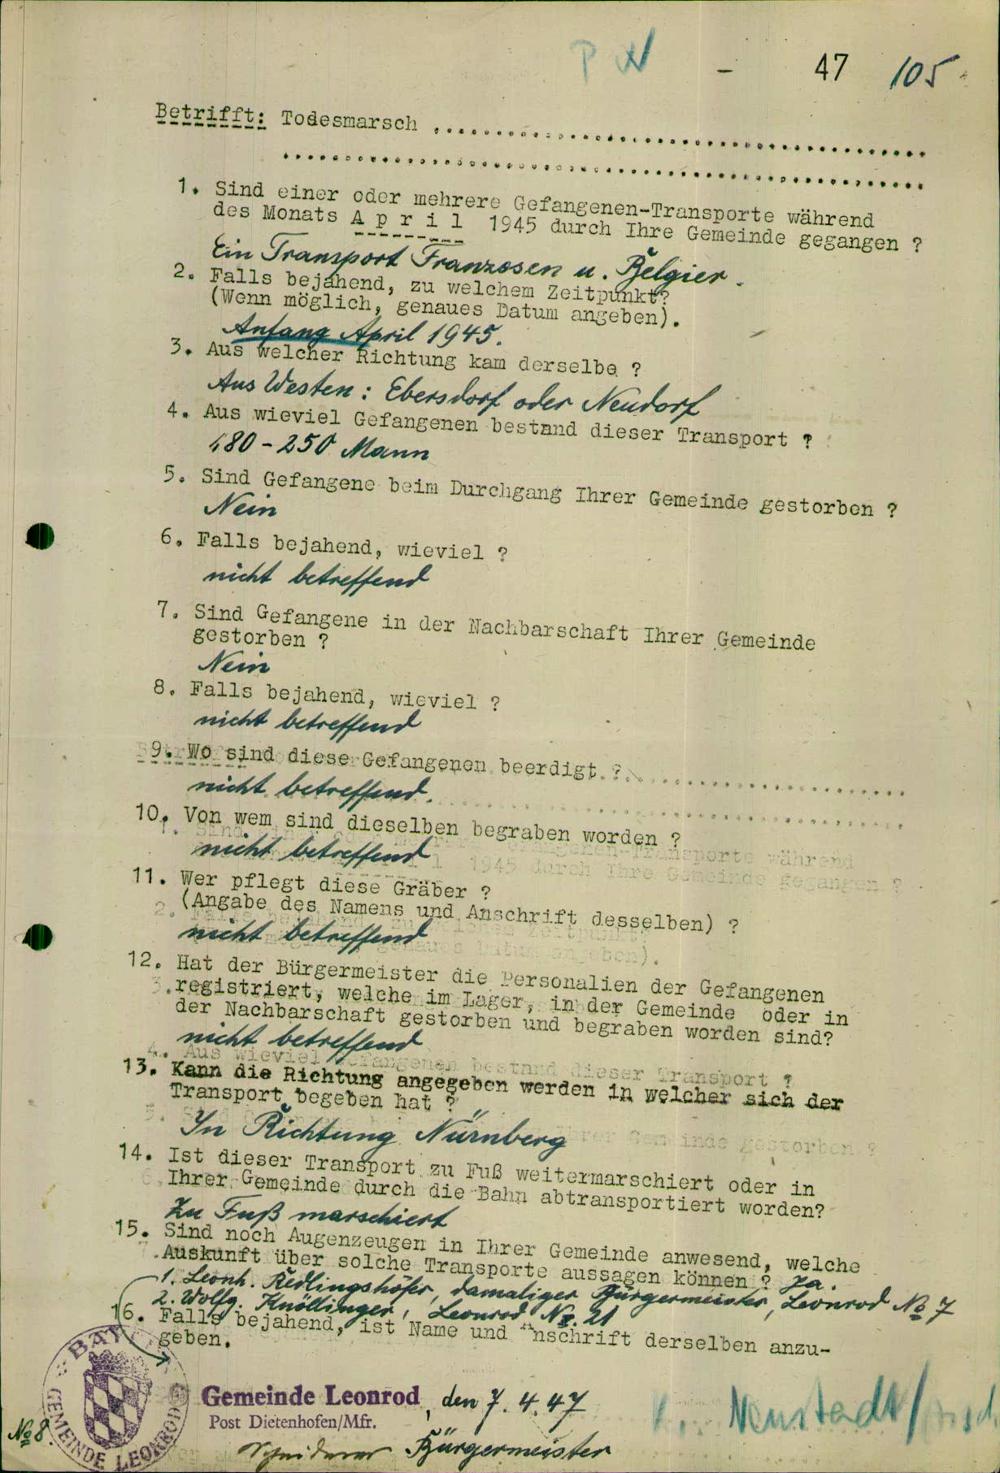 P W - 47 105
Betrifft: Todesmarsch ........................................
........................................
1. Sind einer oder mehrere Gefangenen-Transporte während
des Monats A p r i l 1945 durch Ihre Gemeinde gegangen ?
Ein Transport Franzosen u. Belgier.
2. Falls bejahend, zu welchem Zeitpunkt?
(Wenn möglich, genaues Datum angeben).
Anfang April 1945.
3. Aus welcher Richtung kam derselbe ?
Aus Westen: Ebersdorf oder Neudorf
4. Aus wieviel Gefangenen bestand dieser Transport ?
180 - 250 Mann
5. Sind Gefangene beim Durchgang Ihrer Gemeinde gestorben ?
Nein
6. Falls bejahend, wieviel ?
nicht betreffend
7. Sind Gefangene in der Nachbarschaft Ihrer Gemeinde
gestorben ?
Nein
8. Falls bejahend, wieviel ?
nicht betreffend
9. Wo sind diese Gefangenen beerdigt ?
nicht betreffend.
10. Von wem sind dieselben begraben worden ?
nicht betreffend
11. Wer pflegt diese Gräber ?
(Angabe des Namens und Anschrift desselben) ?
nicht betreffend
12. Hat der Bürgermeister die Personalien der Gefangenen
registriert, welche im Lager, in der Gemeinde oder in
der Nachbarschaft gestorben und begraben worden sind?
nicht betreffend
13. Kann die Richtung angegeben werden in welcher sich der
Transport begeben hat ?
In Richtung Nürnberg
14. Ist dieser Transport zu Fuß weitermarschiert oder in
Ihrer Gemeinde durch die Bahn abtransportiert worden?
Zu Fuß marschiert
15. Sind noch Augenzeugen in Ihrer Gemeinde anwesend, welche
Auskunft über solche Transporte aussagen können ? Ja.
1. Leonh. Redlingshöfer, damaliger Bürgermeister, Leonrod No 7
2. Wolfg. Knöllinger, Leonrod Nr. 21
16. Falls bejahend, ist Name und Anschrift derselben anzu-
geben.
BAY. GEMEINDE LEONROD
Gemeinde Leonrod, den 7. 4. 47
Post Dietenhofen/Mfr.
No 8
Bürgermeister
Neustadt/Aisch